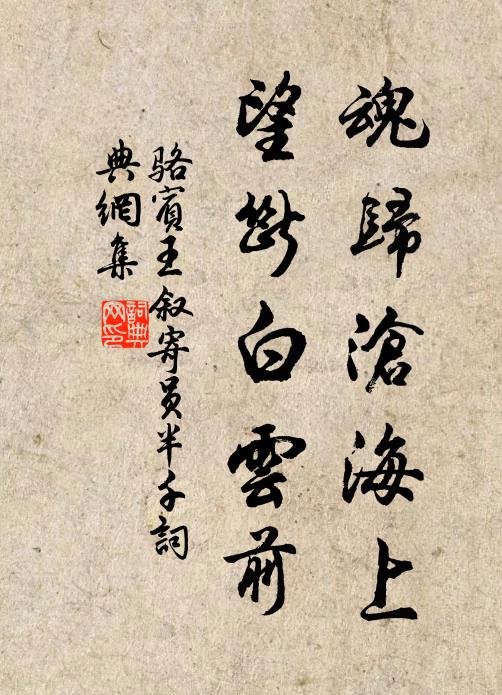 魂歸滄海上
望斷白雲前
駱賓王叙寄員半千詞
典網集
詞典
网印